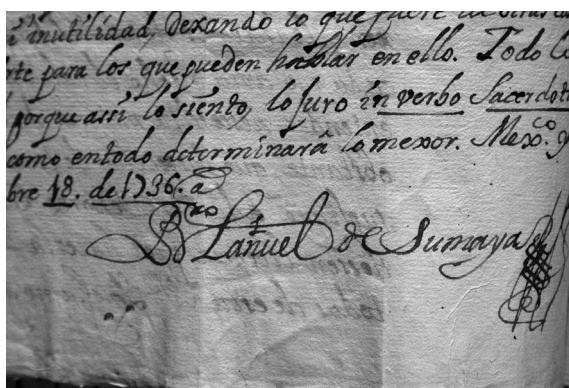 inutilidad, dexando lo que fuere de
rte para los que pueden hablar en ello. Todo lo
porque assi lo siento, lo Juro in verbo Sacerdot
como entodo determinará lo mexor. Mexco y
bre 18. de 1736. as
Br Manuel de Sumaya